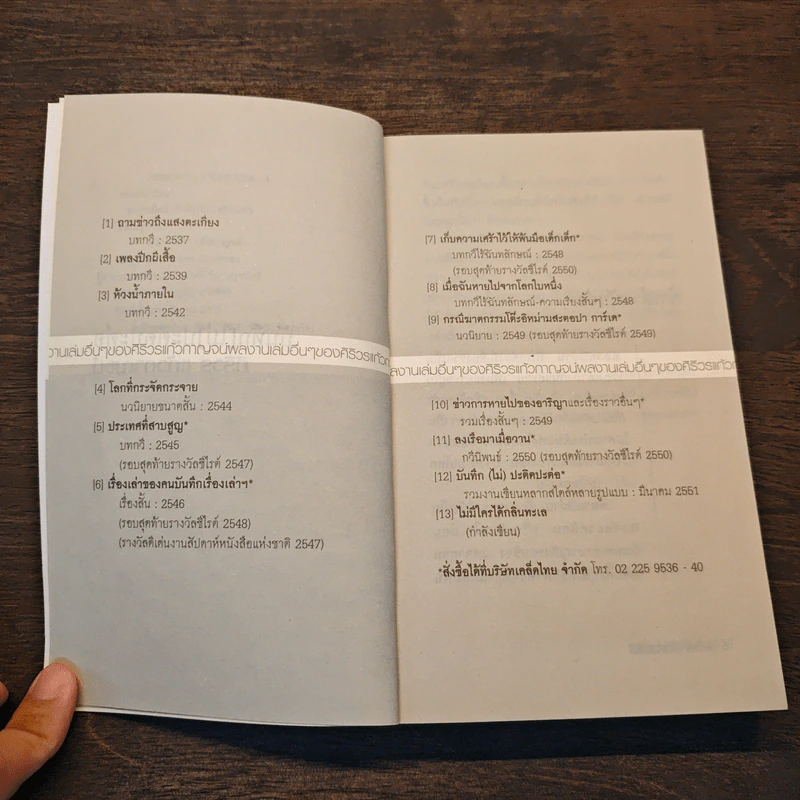 [1] ถามข่าวถึงแสงตะเกียง
บทกวี : 2537
[2] เพลงปีกผีเสื้อ
บทกวี : 2539
[3] ห้วงน้ำภายใน
บทกวี : 2542
งานเล่มอื่นๆของศิริวรแก้วกาญจน์ผลงานเล่มอื่นๆของศิริวรแก้วก
[4] โลกที่กระจัดกระจาย
นวนิยายขนาดสั้น : 2544
[5] ประเทศที่สาบสูญ*
บทกวี : 2545
(รอบสุดท้ายรางวัลซีไรต์ 2547)
[6] เรื่องเล่าของคนบันทึกเรื่องเล่าฯ*
เรื่องสั้น : 2546
(รอบสุดท้ายรางวัลซีไรต์ 2548)
(รางวัลดีเด่นงานสัปดาห์หนังสือแห่งชาติ 2547)
[7] เก็บความเศร้าไว้ให้พ้นมือเด็กเด็ก*
บทกวีไร้ฉันทลักษณ์ : 2548
(รอบสุดท้ายรางวัลซีไรต์ 2550)
[8] เมื่อฉันหายไปจากโลกใบหนึ่ง
บทกวีไร้ฉันทลักษณ์-ความเรียงสั้นๆ : 2548
[9] กรณีฆาตกรรมโต๊ะอิหม่ามสะตอปา การ์เด*
นวนิยาย : 2549 (รอบสุดท้ายรางวัลซีไรต์ 2549)
ลงานเล่มอื่นๆของศิริวรแก้วกาญจน์ผลงานเล่มอื่นๆของศิริวรแก้วก
[10] ข่าวการหายไปของอาริญาและเรื่องราวอื่นๆ*
รวมเรื่องสั้นๆ : 2549
[11] ลงเรือมาเมื่อวาน*
กวีนิพนธ์ : 2550 (รอบสุดท้ายรางวัลซีไรต์ 2550)
[12] บันทึก (ไม่) ปะติดปะต่อ*
รวมงานเขียนหลากสไตล์หลายรูปแบบ : มีนาคม 2551
[13] ไม่มีใครได้กลิ่นทะเล
(กำลังเขียน)
*สั่งซื้อได้ที่บริษัทเคล็ดไทย จำกัด โทร. 02 225 9536 - 40